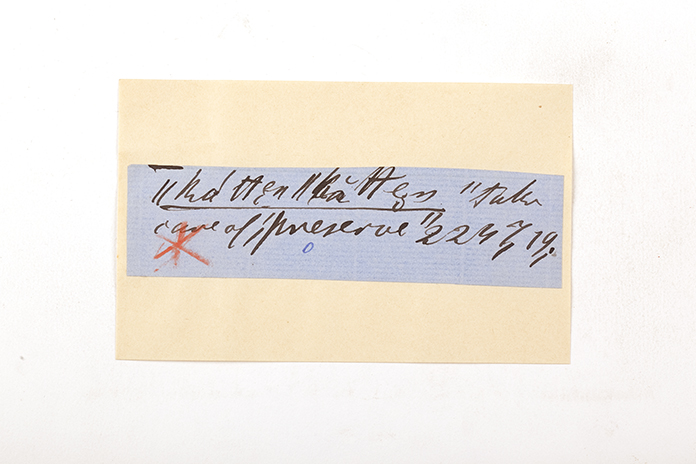 ǁkáttęn ǁkāttęn "take
care of, preserve" 2247, 19,